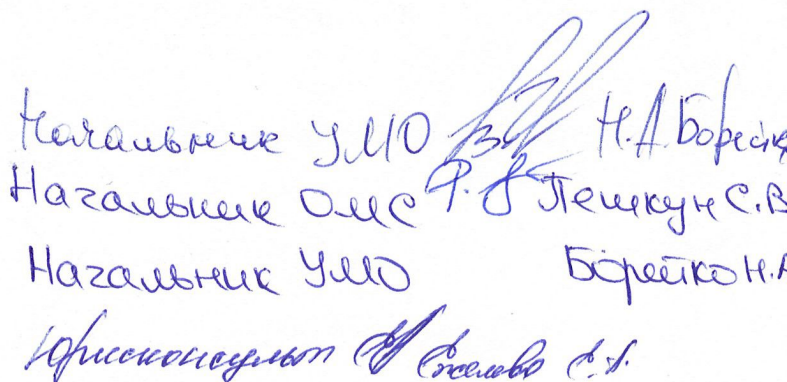 Начальник УМО Н.А. Борейко
Начальник ОМС Пешкун С.В
Начальник УМО Борейко Н.А
Юрисконсульт